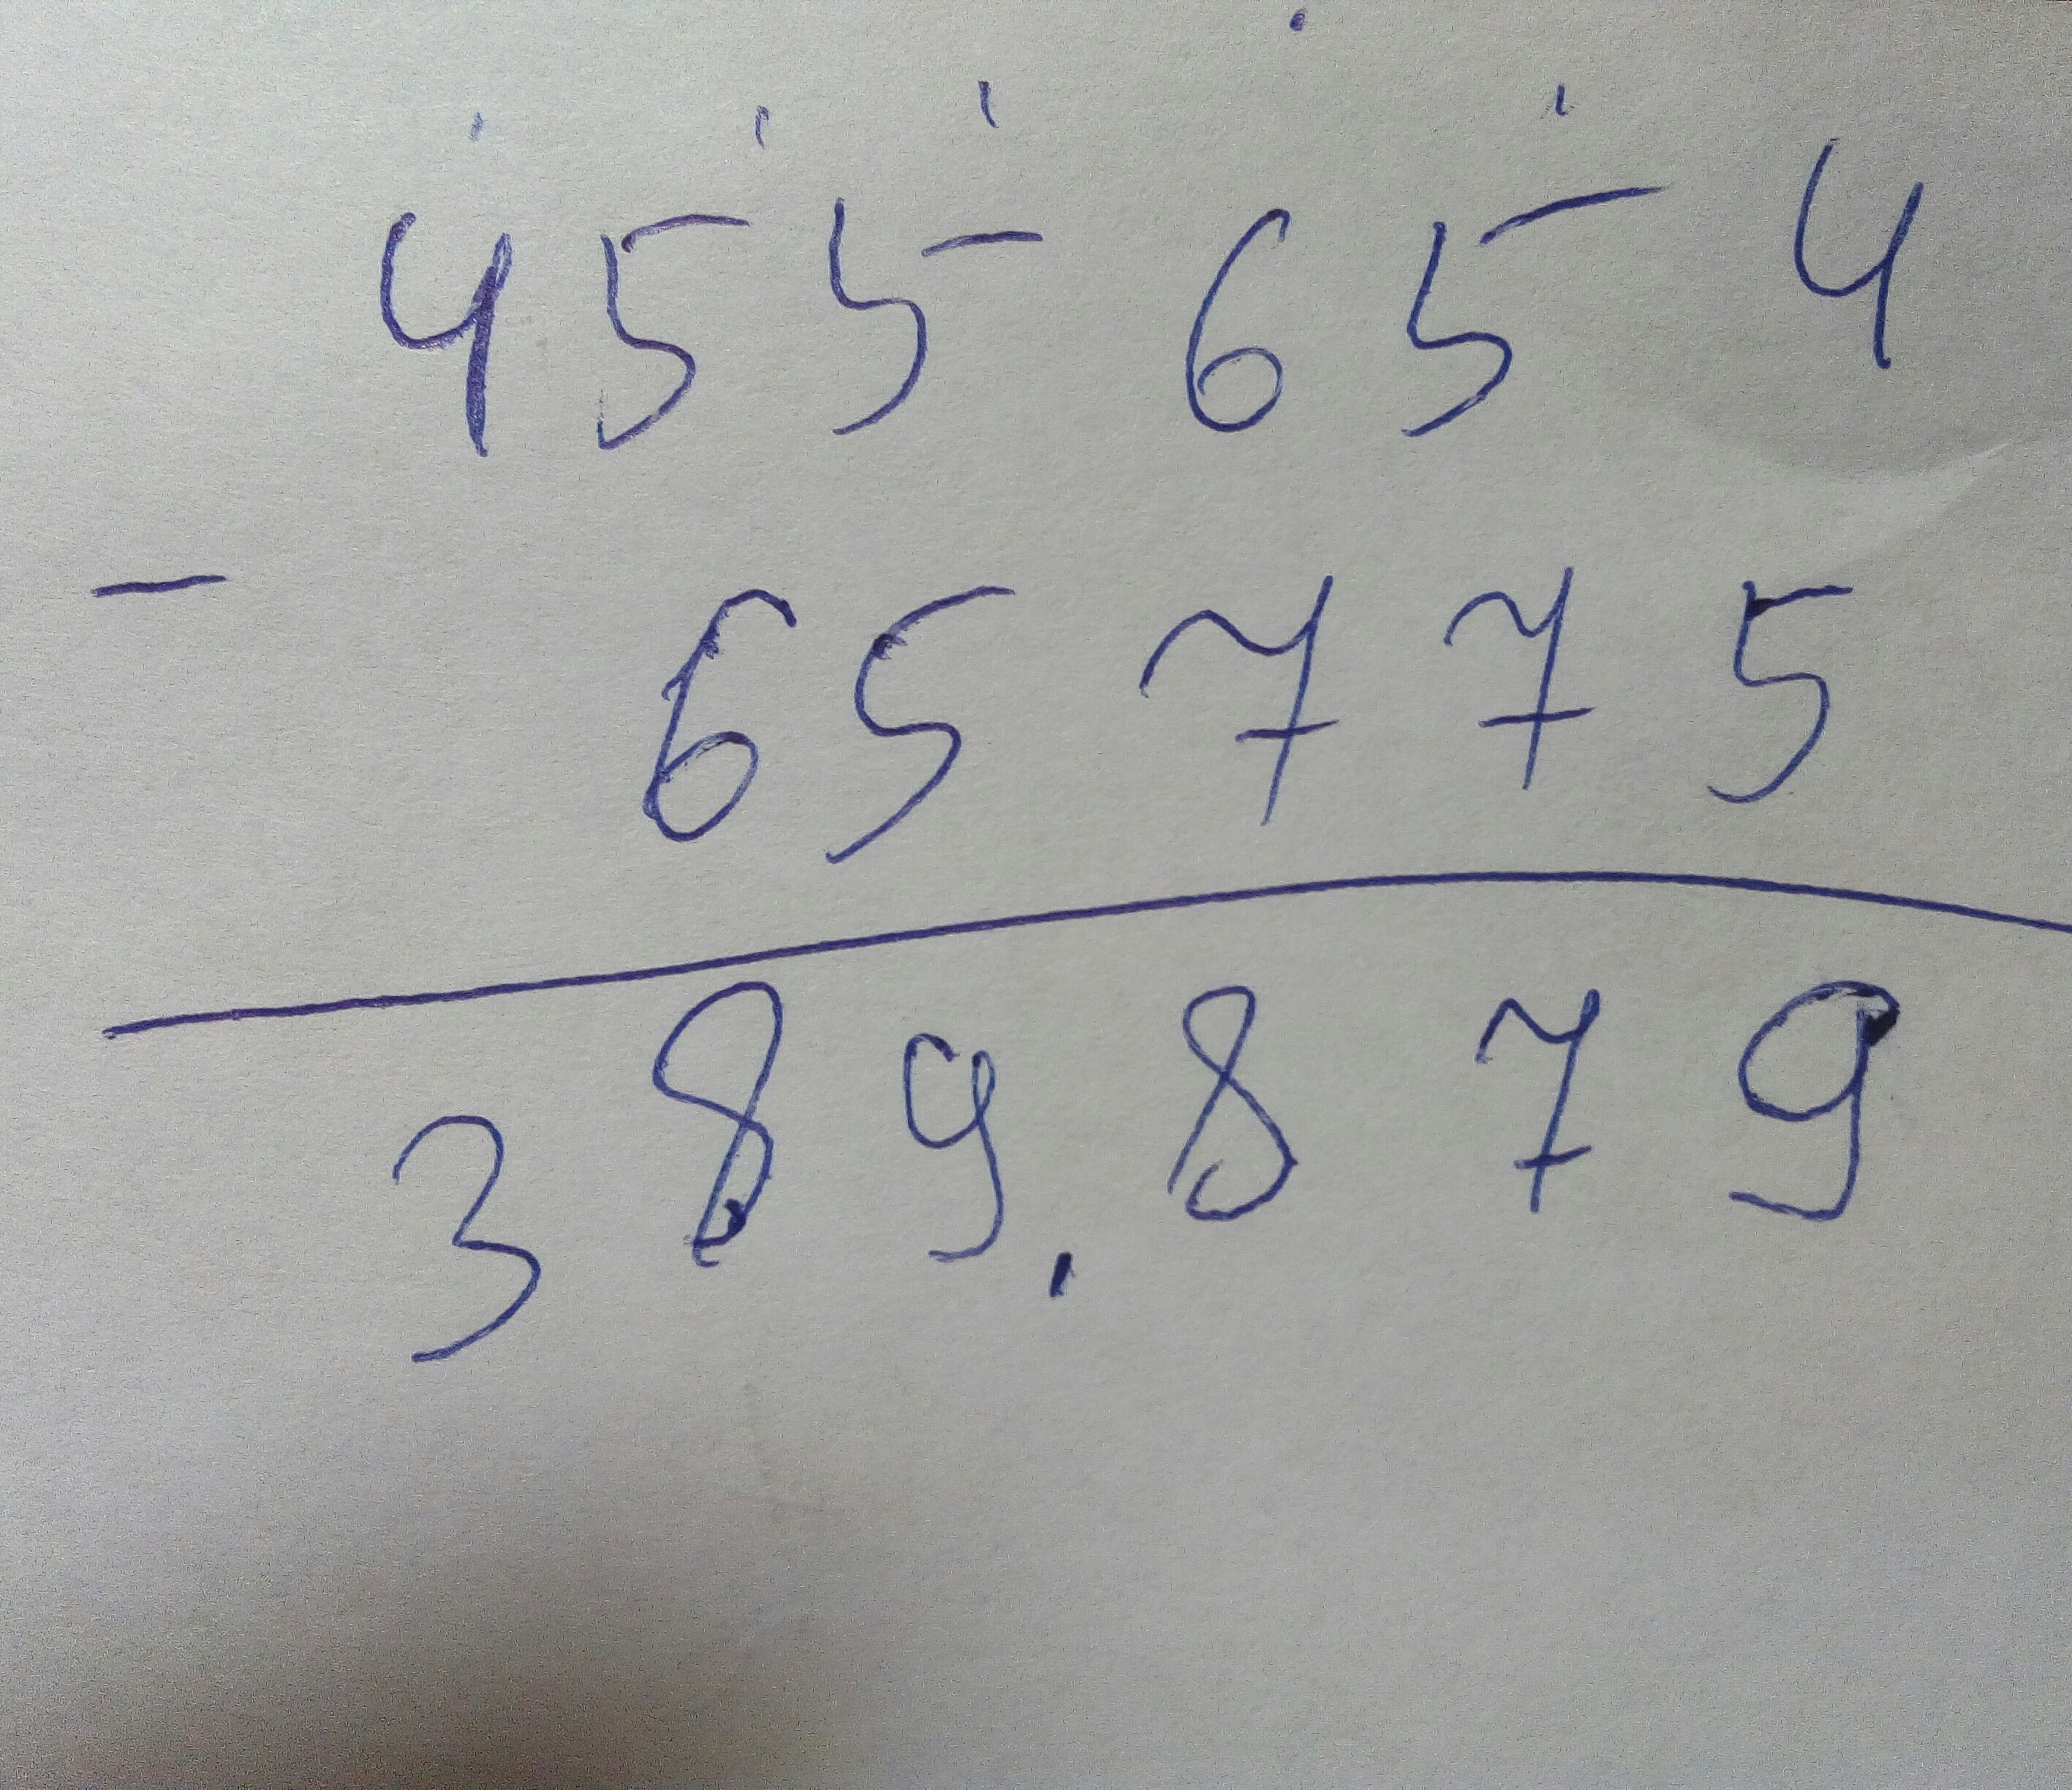 455654
-
65775
389.879